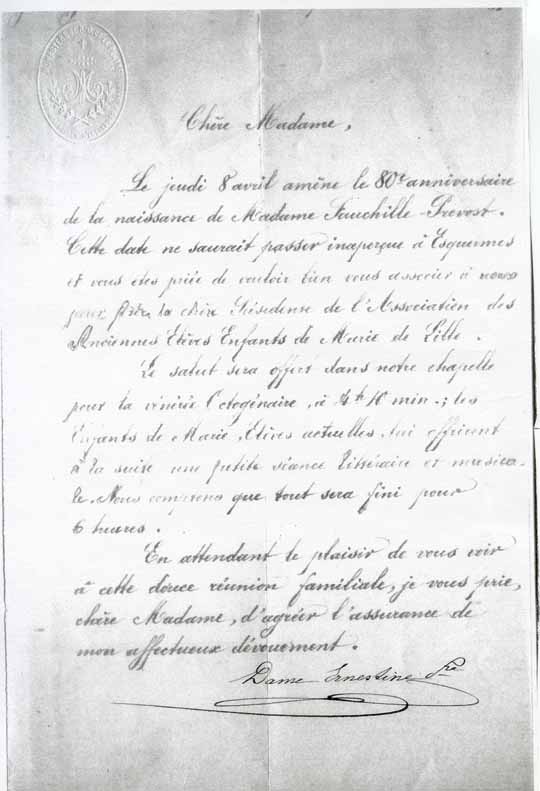 Chère Madame,
Le jeudi 8 avril amène le 80e anniversaire
de la naissance de Madame Fauchille-Prevost.
Cette date ne saurait passer inaperçue à Esquermes
et vous êtes priée de vouloir bien vous associer à nous
pour fêter la chère Présidente de l'Association des
Anciennes Elèves Enfants de Marie de Lille.
Le salut sera offert dans notre chapelle
pour la vénérée Octogénaire, à 4h 10 min.; les
Enfants de Marie, Elèves actuelles, lui offriront
à la suite une petite séance littéraire et musica-
le. Nous comptons que tout sera fini pour
6 heures.
En attendant le plaisir de vous voir
à cette douce réunion familiale, je vous prie,
chère Madame, d'agréer l'assurance de
mon affectueux dévouement.
Dame Ernestine